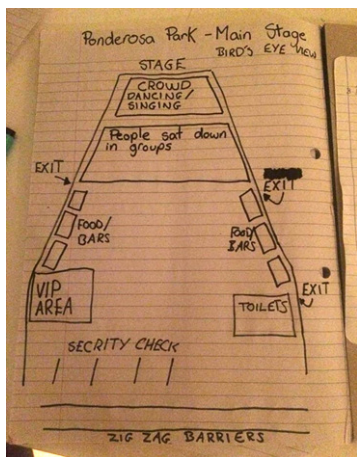 Ponderosa Park - Main Stage
BIRD'S EYE VIEW
STAGE
CROWD
DANCING/
SINGING
People sat down
in groups
EXIT
EXIT
FOOD/
BARS
FOOD/
BARS
VIP
AREA
TOILETS
EXIT
SECRITY CHECK
ZIG ZAG BARRIERS